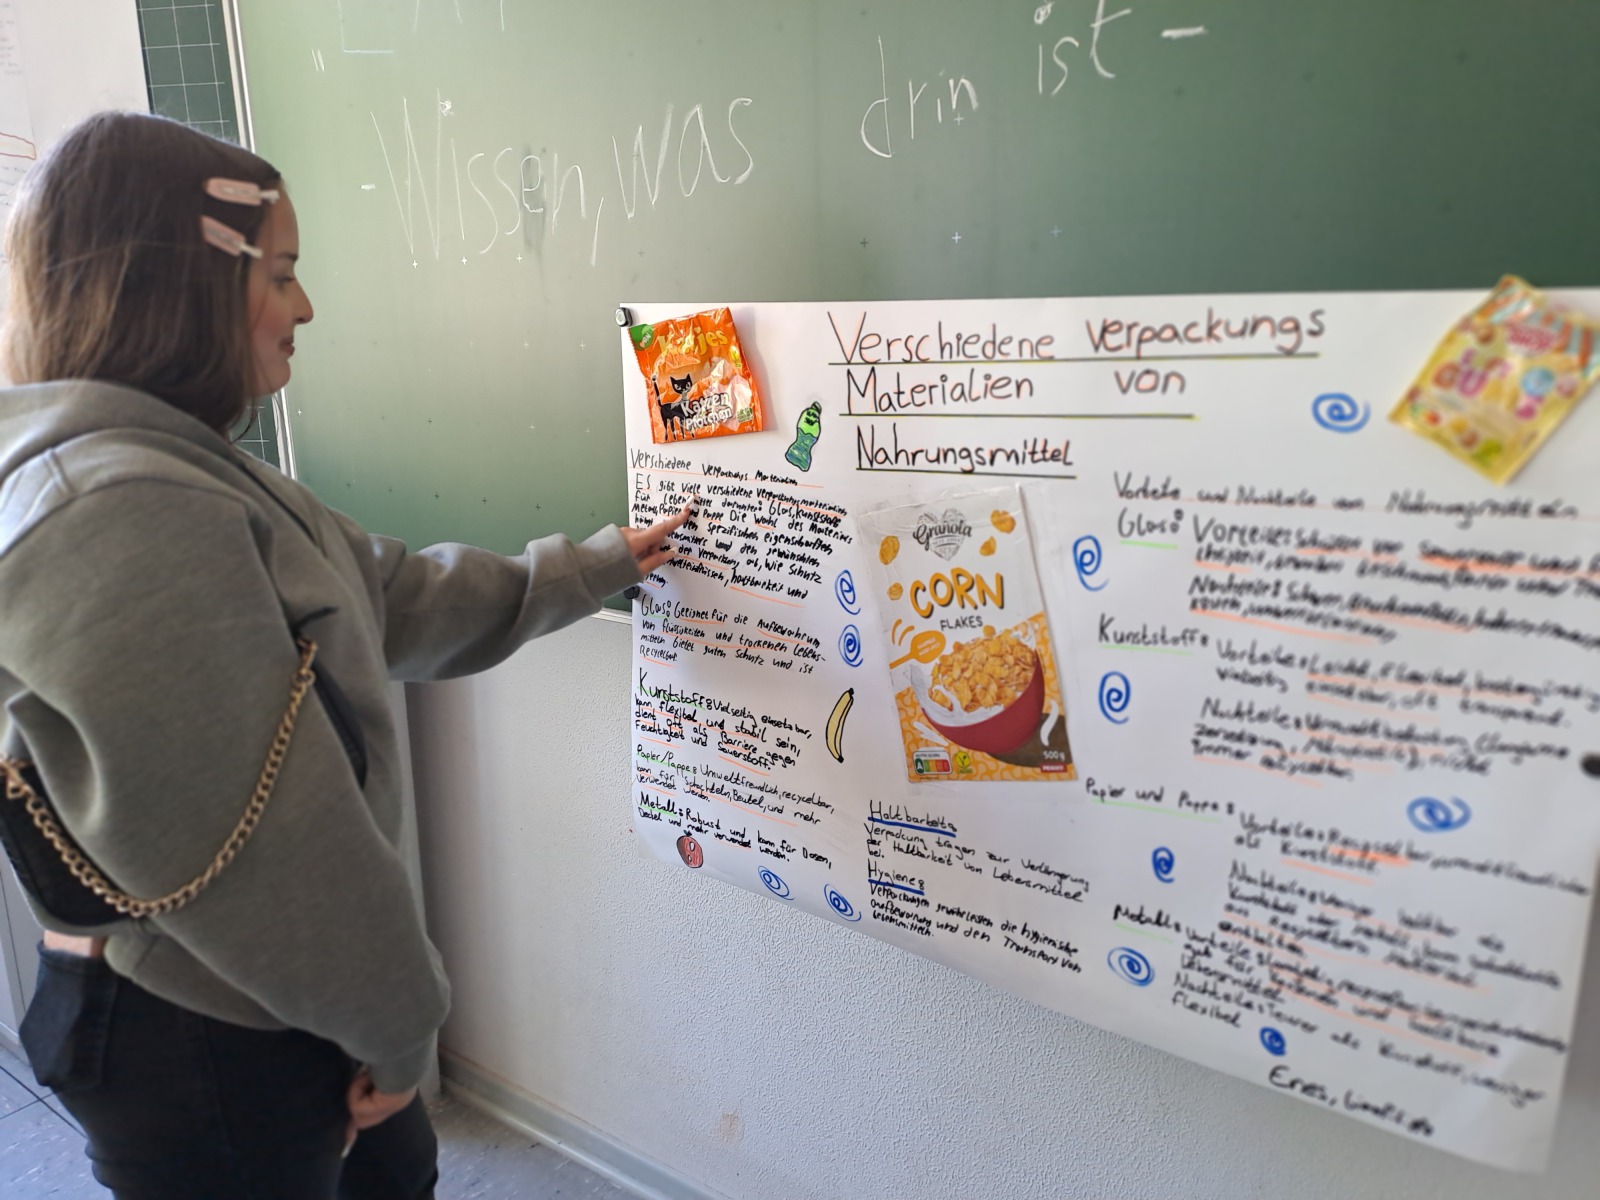 - Wissen, was drin ist -
Verschiedene Verpackungs
Materialien von
Nahrungsmittel
Katjes
Katzen
Pfötchen
Verschiedene Verpackungs Materialien
ES gibt viele verschiedene Verpackungsmaterialien
für Lebensmittel darunter: Glas, Kunststoffe
Metall, Papier und Pappe Die Wahl des Materials
den spezifischen eigenschaften
und den gewünschten
der Verpackung ab, wie Schutz
haltbarkeit und
Glas: Geeignet für die Aufbewahrung
von flüssigkeiten und trockenen Lebens-
mitteln bietet guten Schutz und ist
Recycelbar
Kunststoff: Vielseitig einsetzbar,
kann flexibel und stabil sein,
dient oft als Barriere gegen
Feuchtigkeit und Sauerstoff.
Papier/Pappe: Umweltfreundlich, recycelbar,
kann für Schachteln, Beutel, und mehr
verwendet werden.
Metall: Robust und kann für Dosen,
Deckel und mehr verwendet werden.
Granola
CORN
FLAKES
500g
Haltbarkeit:
Verpackung tragen zur Verlängerung
der Haltbarkeit von Lebensmittel
bei.
Hygiene:
Verpackungen gewährleisten die hygienische
aufbewahrung und den Transport von
Lebensmitteln.
Vorteile und Nachteile von Nahrungsmitteln
Glas: Vorteile: Schützen vor Sauerstoff und
Geschmack,
Nachteile: Schwer,
Kunststoff: Vorteile: Leicht, flexibel, kostengünstig
vielseitig einsetzbar, oft transparent.
Nachteile: Umweltbelastung (langsame
Zersetzung, Mikroplastik), nicht
immer recycelbar.
Papier und Pappe: Vorteile: Recycelbar, umweltfreundlicher
als Kunststoff.
Nachteile: Weniger haltbar als
Kunststoff oder Metall, kann Schadstoffe
aus recyceltem Material
enthalten.
Metall: Vorteile:
gut für Konserven und haltbare
Lebensmittel
Nachteile: Teurer als Kunststoff, weniger
flexibel
Enes,